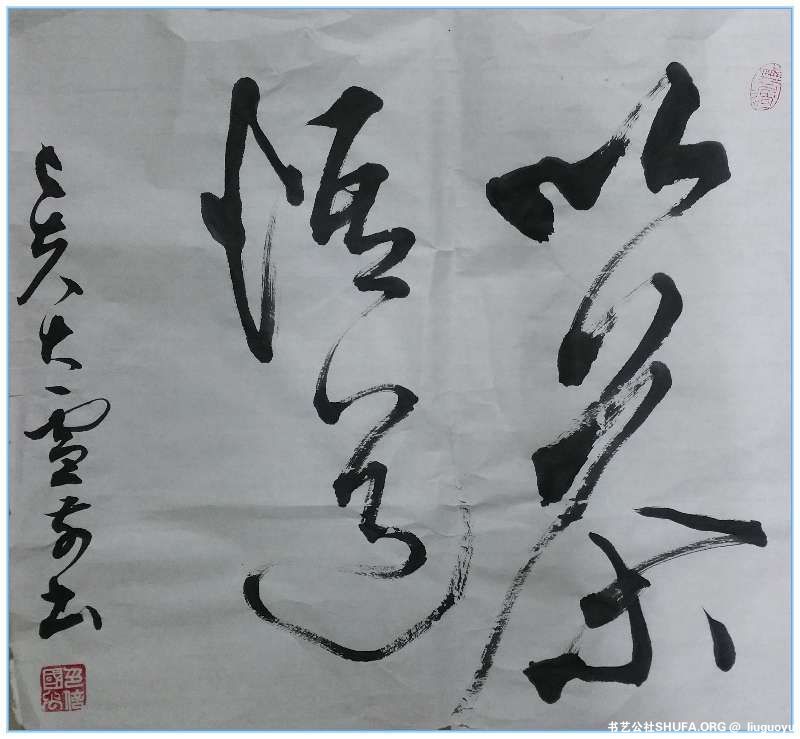 以茶
悟道
己亥大雪前书
书艺公社SHUFA.ORG @ liuguoyu